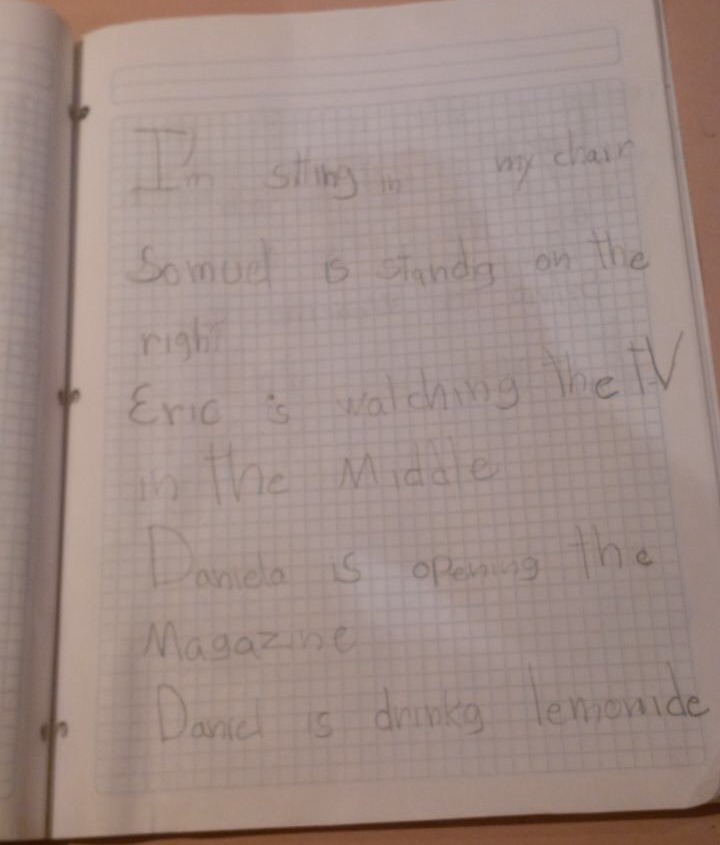 I'm sitting in my chair
Somuel is standg on the
right
Eric is watching the TV
in the Middle
Daniela is opening the
Magazine
Daniel is drinkg lemonide